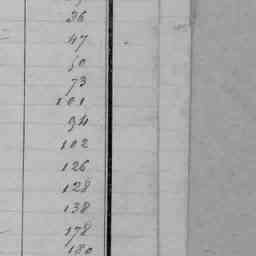 36
47
50
73
101
94
102
126
128
138
178
180